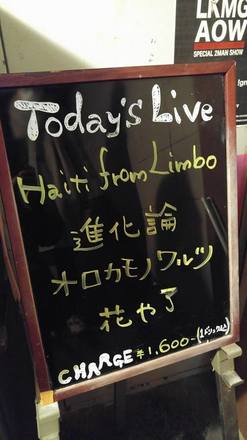 LKMG
AOW
SPECIAL 2MAN SHOW
Today's Live
Haiti from Limbo
進化論
オロカモノワルツ
花や了
CHARGE ¥1,600-